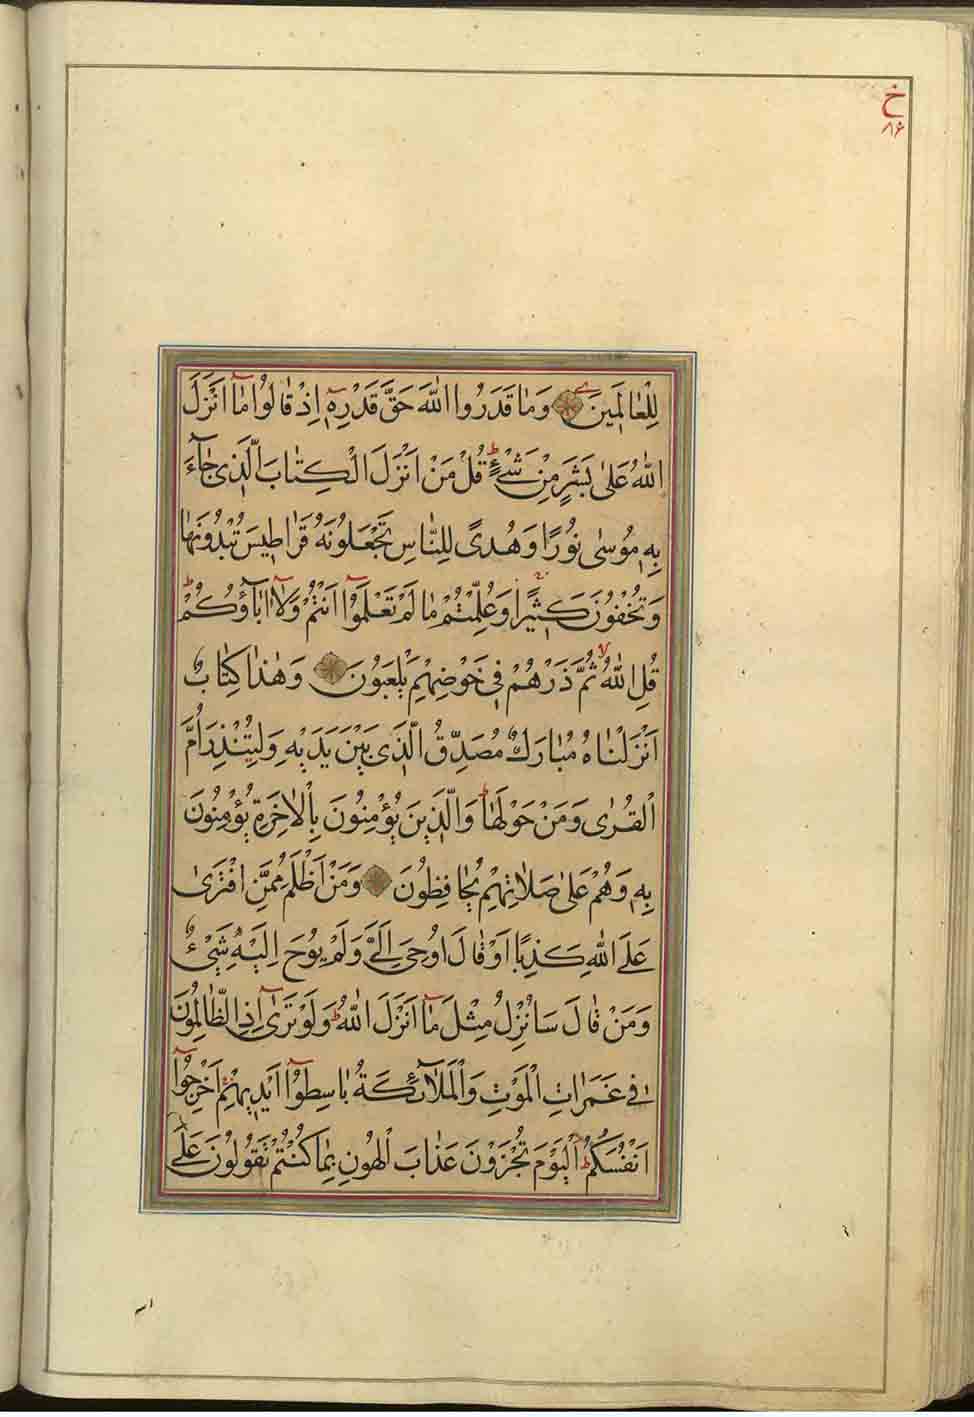 خ
۸۶
لِلْعٰالَمٖینَ وَمٰا قَدَرُوا اللّٰهَ حَقَّ قَدْرِهٖٓ اِذْ قٰالُوا مٰٓا اَنْزَلَ
اللّٰهُ عَلٰی بَشَرٍ مِنْ شَیْءٍ ط قُلْ مَنْ اَنْزَلَ الْکِتٰابَ الَّذٖی جٰٓاءَ
بِهٖ مُوسٰی نُورًا وَهُدًی لِلنّٰاسِ تَجْعَلُونَهُ قَرٰاطٖیسَ تُبْدُونَهٰا
وَتُخْفُونَ کَثٖیرًا وَعُلِّمْتُمْ مٰا لَمْ تَعْلَمُوٓا اَنْتُمْ وَلٰٓا اٰبٰٓاؤُکُمْ ط
قُلِ اللّٰهُ لا ثُمَّ ذَرْهُمْ فٖی خَوْضِهِمْ یَلْعَبُونَ وَهٰذٰا کِتٰابٌ
اَنْزَلْنٰاهُ مُبٰارَكٌ مُصَدِّقُ الَّذٖی بَیْنَ یَدَیْهِ وَلِتُنْذِرَ اُمَّ
الْقُرٰی وَمَنْ حَوْلَهٰا ط وَالَّذٖینَ یُؤْمِنُونَ بِالْاٰخِرَةِ یُؤْمِنُونَ
بِهٖ وَهُمْ عَلٰی صَلٰاتِهِمْ یُحٰافِظُونَ وَمَنْ اَظْلَمُ مِمَّنِ افْتَرٰی
عَلَی اللّٰهِ کَذِبًا اَوْ قٰالَ اُوحِیَ اِلَیَّ وَلَمْ یُوحَ اِلَیْهِ شَیْءٌ
وَمَنْ قٰالَ سَاُنْزِلُ مِثْلَ مٰٓا اَنْزَلَ اللّٰهُ ط وَلَوْ تَرٰٓی اِذِ الظّٰالِمُونَ
فٖی غَمَرٰاتِ الْمَوْتِ وَالْمَلٰٓائِکَةُ بٰاسِطُوٓا اَیْدٖیهِمْ اَخْرِجُوٓا
اَنْفُسَکُمْ ط اَلْیَوْمَ تُجْزَوْنَ عَذٰابَ الْهُونِ بِمٰا کُنْتُمْ تَقُولُونَ عَلَی